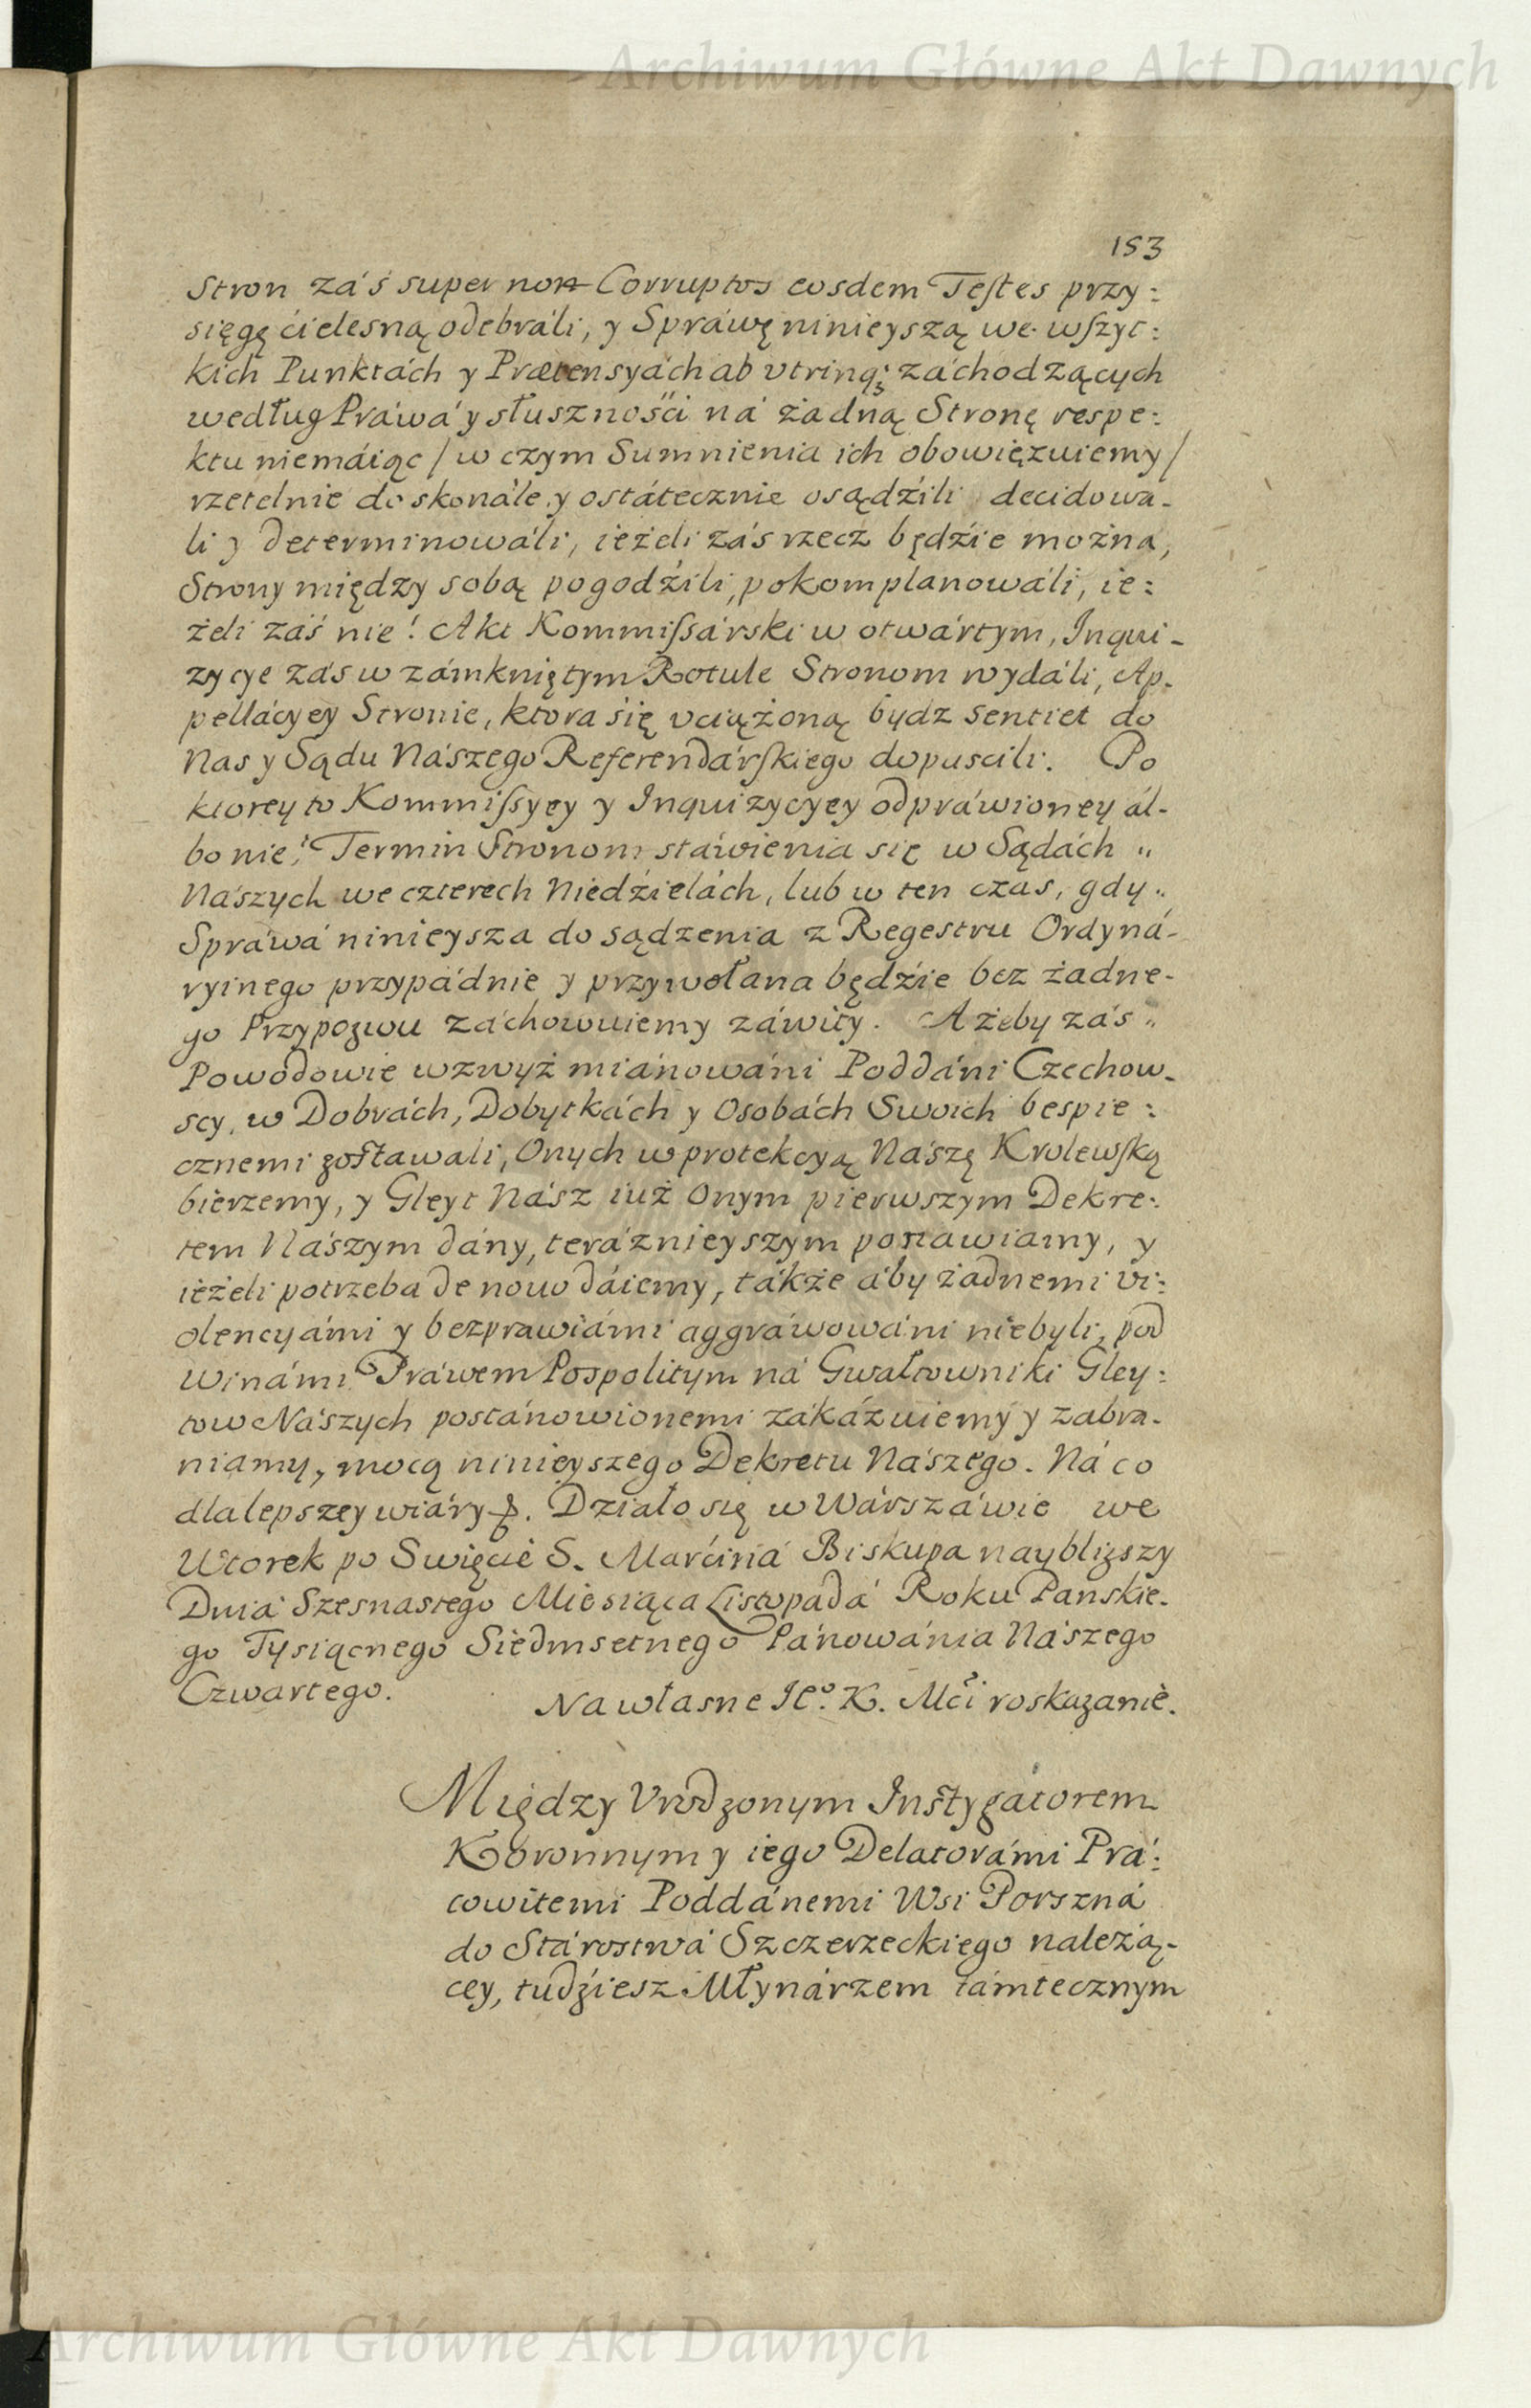 Archiwum Główne Akt Dawnych
153
Stron záś super non Corruptos eosdem Teſtes przy:
sięgę ćielesną odebráli, y Spráwę ninieyszą we wſzyt:
kich Punktách y Prætensyách ab vtrinq; záchodzących
według Práwá y słusznośći ná żadną Stronę respe:
ktu niemáiąc / w czym Sumnienia ich obowięzuiemy /
rzetelnie doskonále y ostátecznie osądźili decidowa-
li y determinowáli, ieżeli záś rzecz będźie możná,
Strony między sobą pogodźili, pokomplanowáli, ie:
żeli záś nie! Akt Kommiſsárski w otwártym, Inqui-
zycye záś w zámkniętym Rotule Stronom wydáli, Ap-
pellácyey Stronie, ktora się vciążoną bydz sentiet do
Nas y Sądu Nászego Referendárſkiego dopuscili. Po
ktorey to Kommiſsyey y Inquizycyey odpráwioney ál-
bo nie! Termin Stronom stáwienia się w Sądách "
Nászych we czterech Niedźielách, lub w ten czas, gdy "
Spráwá ninieysza do sądzenia z Regestru Ordyná-
ryinego przypádnie y przywołana będźie bez żadne-
go Przypozwu záchowuiemy záwity. Ażeby záś "
Powodowie wzwyż miánowáni Poddáni Czechow-
scy, w Dobrách, Dobytkách y Osobách Swoich bespie:
cznemi zostawali, Onych w protekcyą Nászę Krolewſką
bierzemy, y Gleyt Nász iuż Onym pierwszym Dekre:
tem Nászym dány, teráznieyszym ponawiamy, y
ieżeli potrzeba de nouo dáiemy, tákże áby żadnemi vi:
olencyámi y bezprawiámi aggráwowáni niebyli, pod
Winámi Práwem Pospolitym ná Gwałtowniki Gley:
tow Nászych postánowionemi zákázuiemy y zabra-
niamy, mocą ninieyszego Dekretu Nászego. Ná co
dla lepszey wiáry &. Działo się w Wárszáwie we
Wtorek po Swięcie S. Marćiná Biskupa naybliższy
Dniá Szesnastego Miesiąca Listopadá Roku Panskie-
go Tysiącnego Siedmsetnego Pánowánia Nászego
Czwartego.
Na własne Je⁰. K. Mći roskazanie.
Między Vrodzonym Instygátorem
Koronnym y iego Delatorámi Prá:
cowitemi Poddánemi Wsi Porszná
do Stárostwá Szczerzeckiego należą-
cey, tudźiesz Młynárzem támtecznym
Archiwum Główne Akt Dawnych